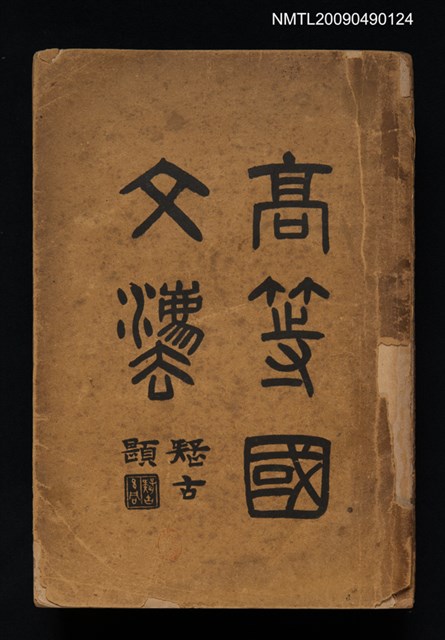 NMTL20090490124
高等國
文灋
疑古
題